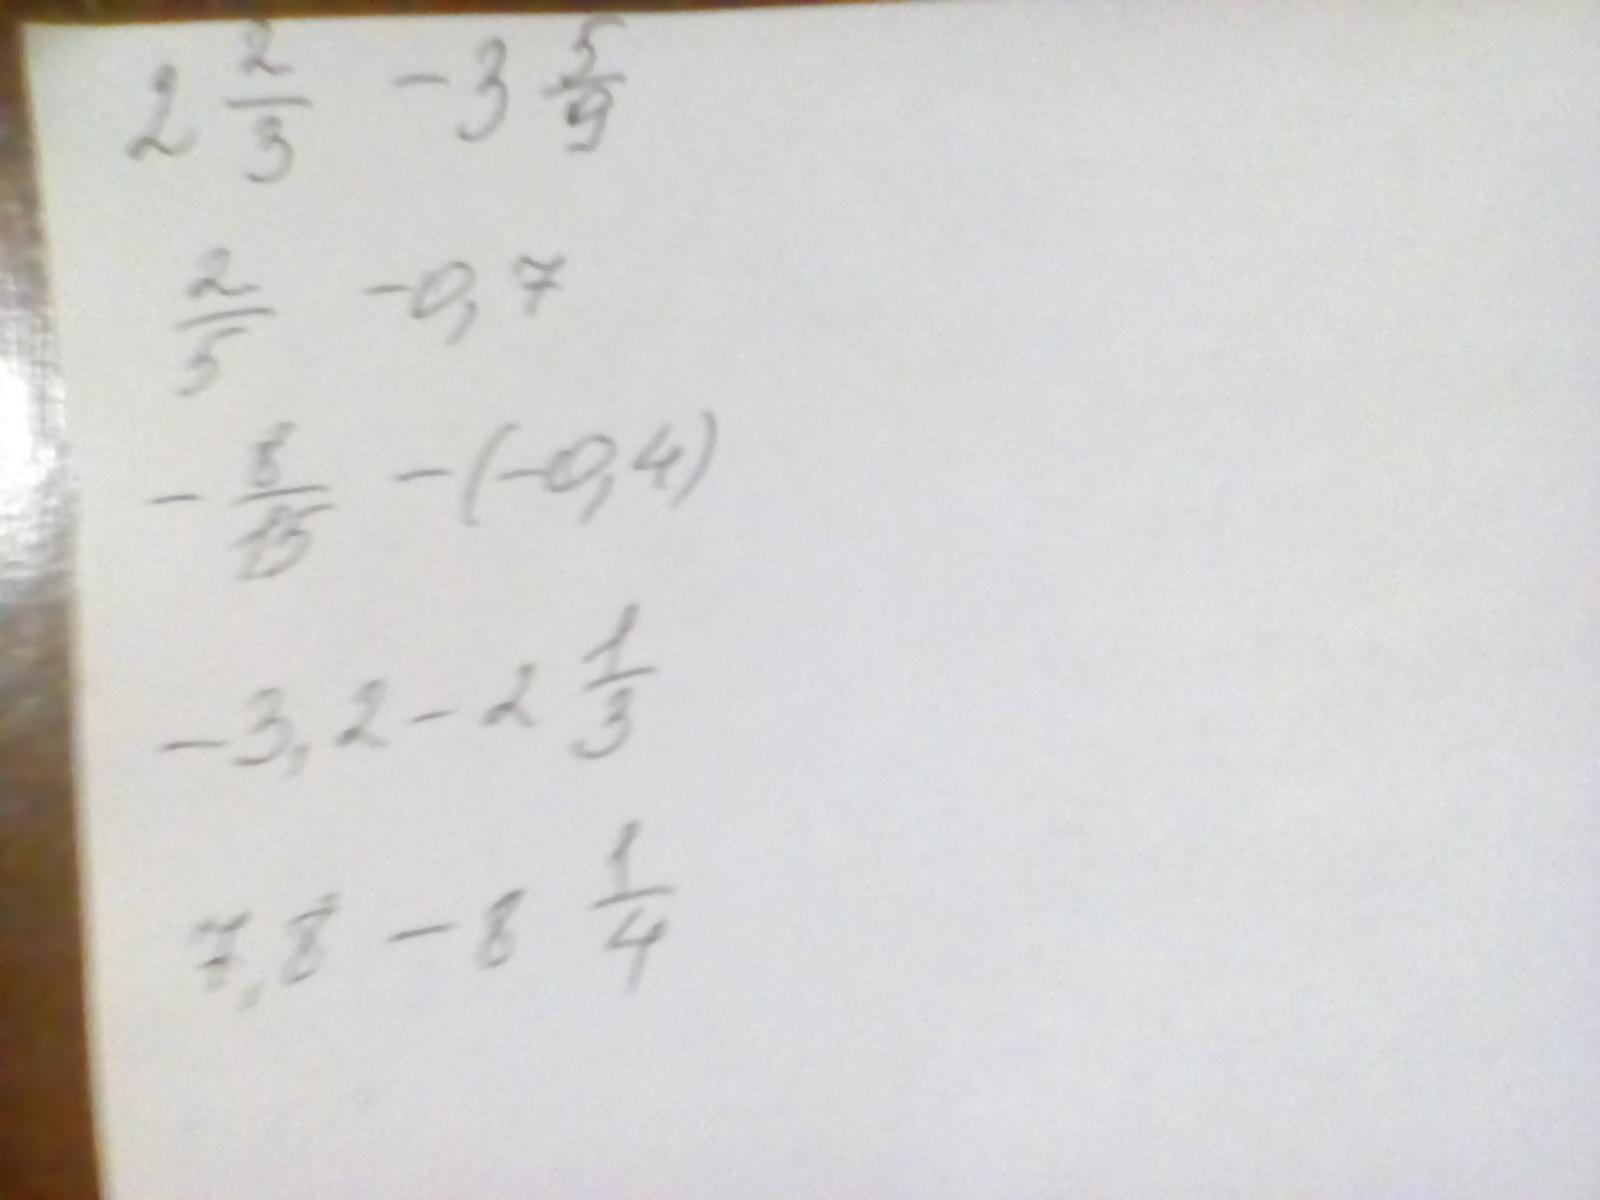 2 2/3 - 3 5/9
2/5 - 0,7
- 8/15 - (-0,4)
-3,2 - 2 1/3
7,8 - 8 1/4